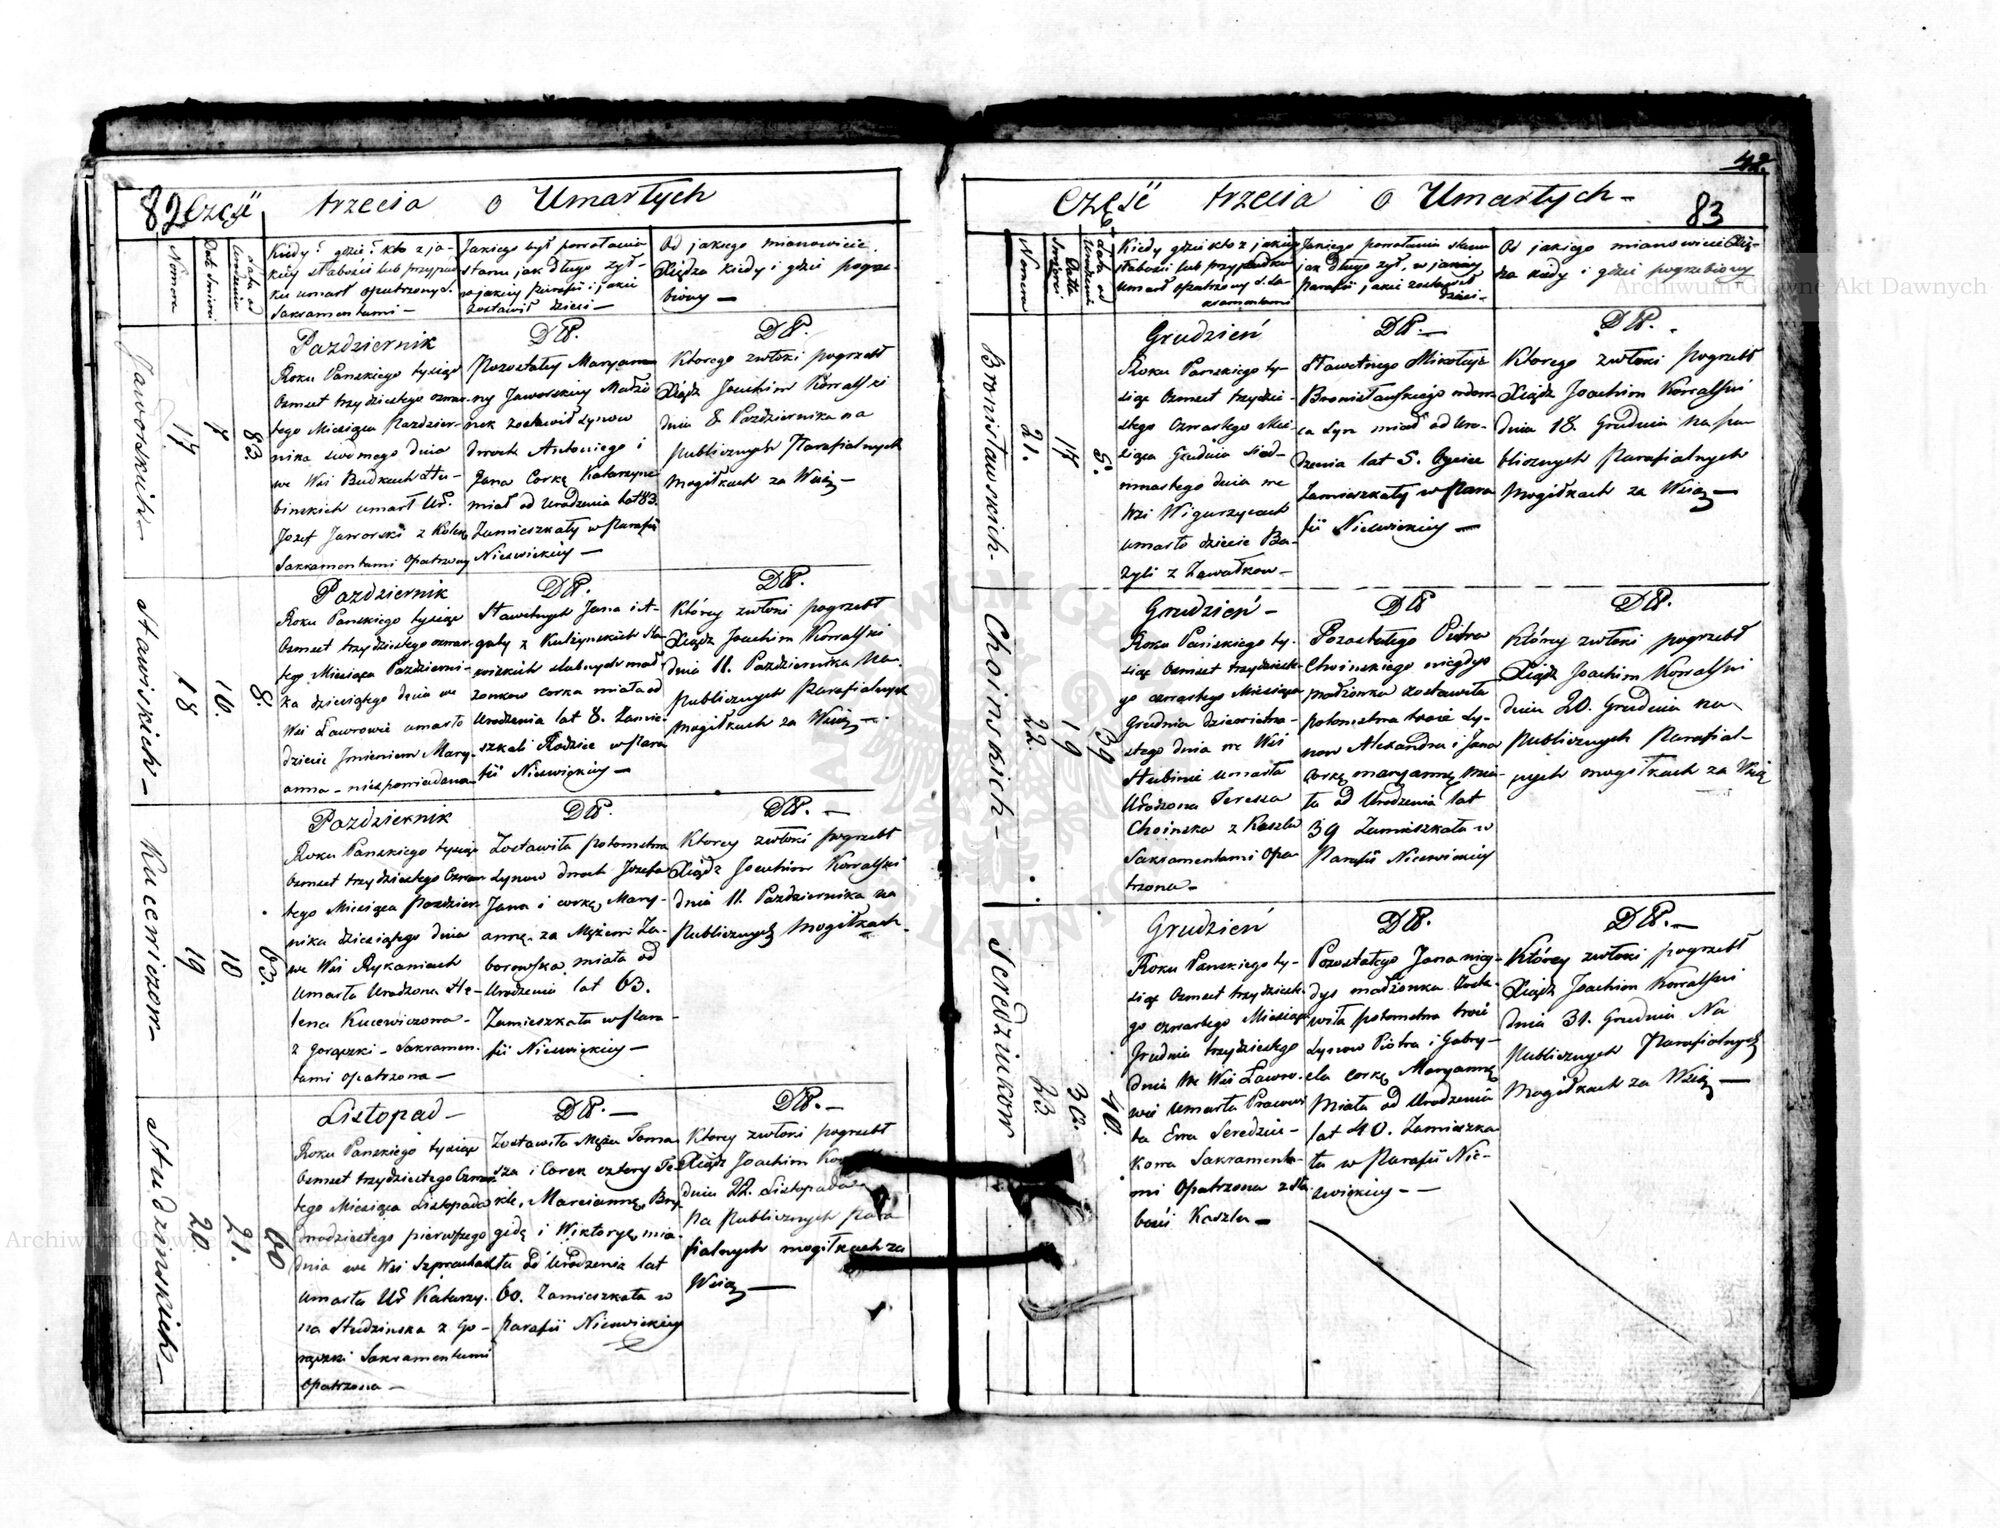 82 Część trzecia o Umarłych
Nomera
Data Smierci
Lata od Urodzenia
Kiedy? gdzie? kto z ja-
kiey słabości lub przypad
ku umarł opatrzony S.
Sakramentami —
Jakiego był powołania
stanu jak długo żył -
w jakiey Parafii i jakie
zostawił dzieci —
Od jakiego mianowicie
Xiędza kiedy i gdzie pogrze-
biony —
Jaworskich
17
7
83.
Pazdziernik
Roku Panskiego tysiąc
Osmset trzydziestego czwar-
tego Miesiąca Pazdzier-
nika siodmego dnia
we Wsi Budkach Stu-
binskich umarł Ur.
Jozef Jaworski z Kolki
Sakramentami Opatrzony
DW.
Pozostałey Maryan
ny Jaworskiey Małżo
nek zostawił synow
dwoch Antoniego i
Jana Corkę Katarzynę
miał od Urodzenia lat 83.
Zamieszkały w Parafii
Nieswickiey —
DW.
Ktorego zwłoki pogrzebł
Xiądz Joachim Kowalski
dnia 8 Pazdziernika na
publicznych Parafialnych
Mogiłkach za Wsią —
Stawiskich —
18
10.
8.
Pazdziernik
Roku Panskiego tysiąc
Osmset trzydziestego czwar-
tego Miesiąca Pazdzierni-
ka dziesiątego dnia we
Wsi Ławrowie umarło
dziecie Imieniem Mary-
anna - niespowiadana
DW.
Sławetnych Jana i A-
gaty z Kulzynskich Sta-
wiskich slubnych mał
żonkow corka miała od
Urodzenia lat 8. Zamie-
szkali Rodzice w Para
fii Nieswickiey —
DW.
Którey zwłoki pogrzebł
Xiądz Joachim Kowalski
dnia 11. Pazdziernika Na
Publicznych Parafialnych
mogiłkach za Wsią —
Kucewiczow —
19
10
63.
Pazdziernik
Roku Panskiego tysiąc
Osmset trzydziestego Czwar
tego Miesiąca Pazdzier
nika dziesiątego dnia
we Wsi Rykaniach
Umarła Urodzona He-
lena Kucewiczowa -
z gorączki - Sakramen-
tami opatrzona —
DW.
Zostawiła potomstwa
Synow dwoch Jozefa
Jana i corkę Mary-
annę za Mężem Za-
borowska miała od
Urodzenia lat 63.
Zamieszkała w Para -
fii Nieswickiey —
DW. —
Ktorey zwłoki pogrzebł
Xiądz Joachim Kowalski
dnia 11. Pazdziernika na
Publicznych Mogiłkach -
Studzinskich —
20
21.
60
Listopad —
Roku Panskiego tysiąc
Osmset trzydziestego Czwar
tego Miesiąca Listopada
dwudziestego pierwszego
dnia we Wsi Szprachach
umarła Ur Katarzy-
na Studzinska z Go-
rączki Sakramentami
Opatrzona —
DW. —
Zostawiła Męża Toma
sza i Corek cztery Te-
klę, Marciannę, Bry
gidę i Wiktoryę, mia-
ła od Urodzenia lat
60. Zamieszkała w
Parafii Nieswickiey
DW. —
Ktorey zwłoki pogrzebł
Xiądz Joachim
dnia 22. Listopada
Na Publicznych Para
fialnych mogiłkach za
Wsią —
42.
Część trzecia o Umarłych - 83
Nomera
Data Smierci
Lata od Urodzenia
Kiedy gdzie kto z jakiey
słabości lub przypadku
umarł opatrzony S. Sa-
kramentami
Jakiego powołania stanu
jak długo żył, w jakiey
Parafii jakie zostawił
dzieci —
Od jakiego mianowicie Xię-
dza kiedy i gdzie pogrzebiony
Bronisławskich -
21.
17
5.
Grudzień
Roku Panskiego ty-
siąc Osmset trzydzie-
stego Czwartego Mie-
siąca Grudnia siod-
mnastego dnia we
Wsi Wigurzycach
umarło dziecie Ba-
zyli z Zawałkow —
DW. —
Sławetnego Mikołaja
Bronisławskiego wdow-
ca Syn miał od Uro-
dzenia lat 5. Oycice
Zamieszkały w Para
fii Nieswickiey —
DW. -
Ktorego zwłoki pogrzebł
Xiądz Joachim Kowalski
dnia 18. Grudnia na pu
blicznych Parafialnych
Mogiłkach za Wsią —
Choinskich -
22.
19
39
Grudzień -
Roku Pańskiego ty-
siąc Osmset trzydzieste-
go czwartego Miesiąca
Grudnia dziewietna-
stego dnia we Wsi
Stubinie umarła
Urodzona Teressa
Choinska z Kaszlu
Sakramentami Opa-
trzona -
DW
Pozostałego Piotra
Choinskiego niegdys
małżonka zostawiła
potomstwa troie Sy-
now Alexandra i Jana
Corkę maryannę mia-
ła od Urodzenia lat
39 Zamieszkała w
Parafii Nieswickiey
DW.
Którey zwłoki pogrzebł
Xiądz Joachim Kowalski
dnia 20. Grudnia na
Publicznych Parafial-
nych mogiłkach za Wsią
Seredziukow
23
30.
40.
Grudzień
Roku Panskiego ty-
siąc Osmset trzydzieste-
go czwartego Miesiąca
Grudnia trzydziestego
dnia We Wsi Ławro-
wie umarła Pracowi
ta Ewa Seredziu-
kowa Sakramenta-
mi Opatrzona z sła
bości Kaszlu —
DW.
Pozostałego Jana nieg-
dys małżonka Zosta-
wiła potomstwa troie
Synow Piotra i Gabry-
ela corkę Maryannę
Miała od Urodzenia
lat 40. Zamieszka
ła w Parafii Nie-
swickiey - -
DW. —
Którey zwłoki pogrzebł
Xiądz Joachim Kowalski
dnia 31. Grudnia Na
Publicznych Parafialnych
Mogiłkach za Wsią —
Archiwum Główne Akt Dawnych
Archiwum Główne A